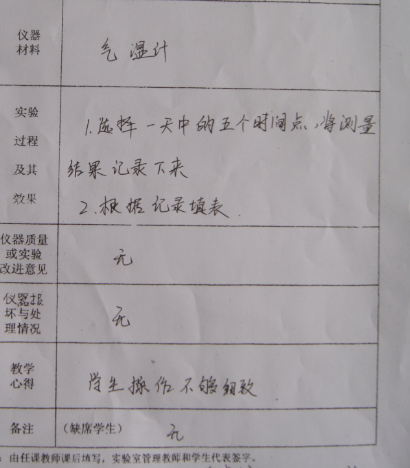 仪器
材料
气温计
实验
过程
及其
效果
1.选择一天中的五个时间点,将测量
结果记录下来
2.根据记录填表.
仪器质量
或实验
改进意见
无
仪器报
坏与处
理情况
无
教学
心得
学生操作不够细致
备注
(缺席学生)
无
:由任课教师课后填写,实验室管理教师和学生代表签字。